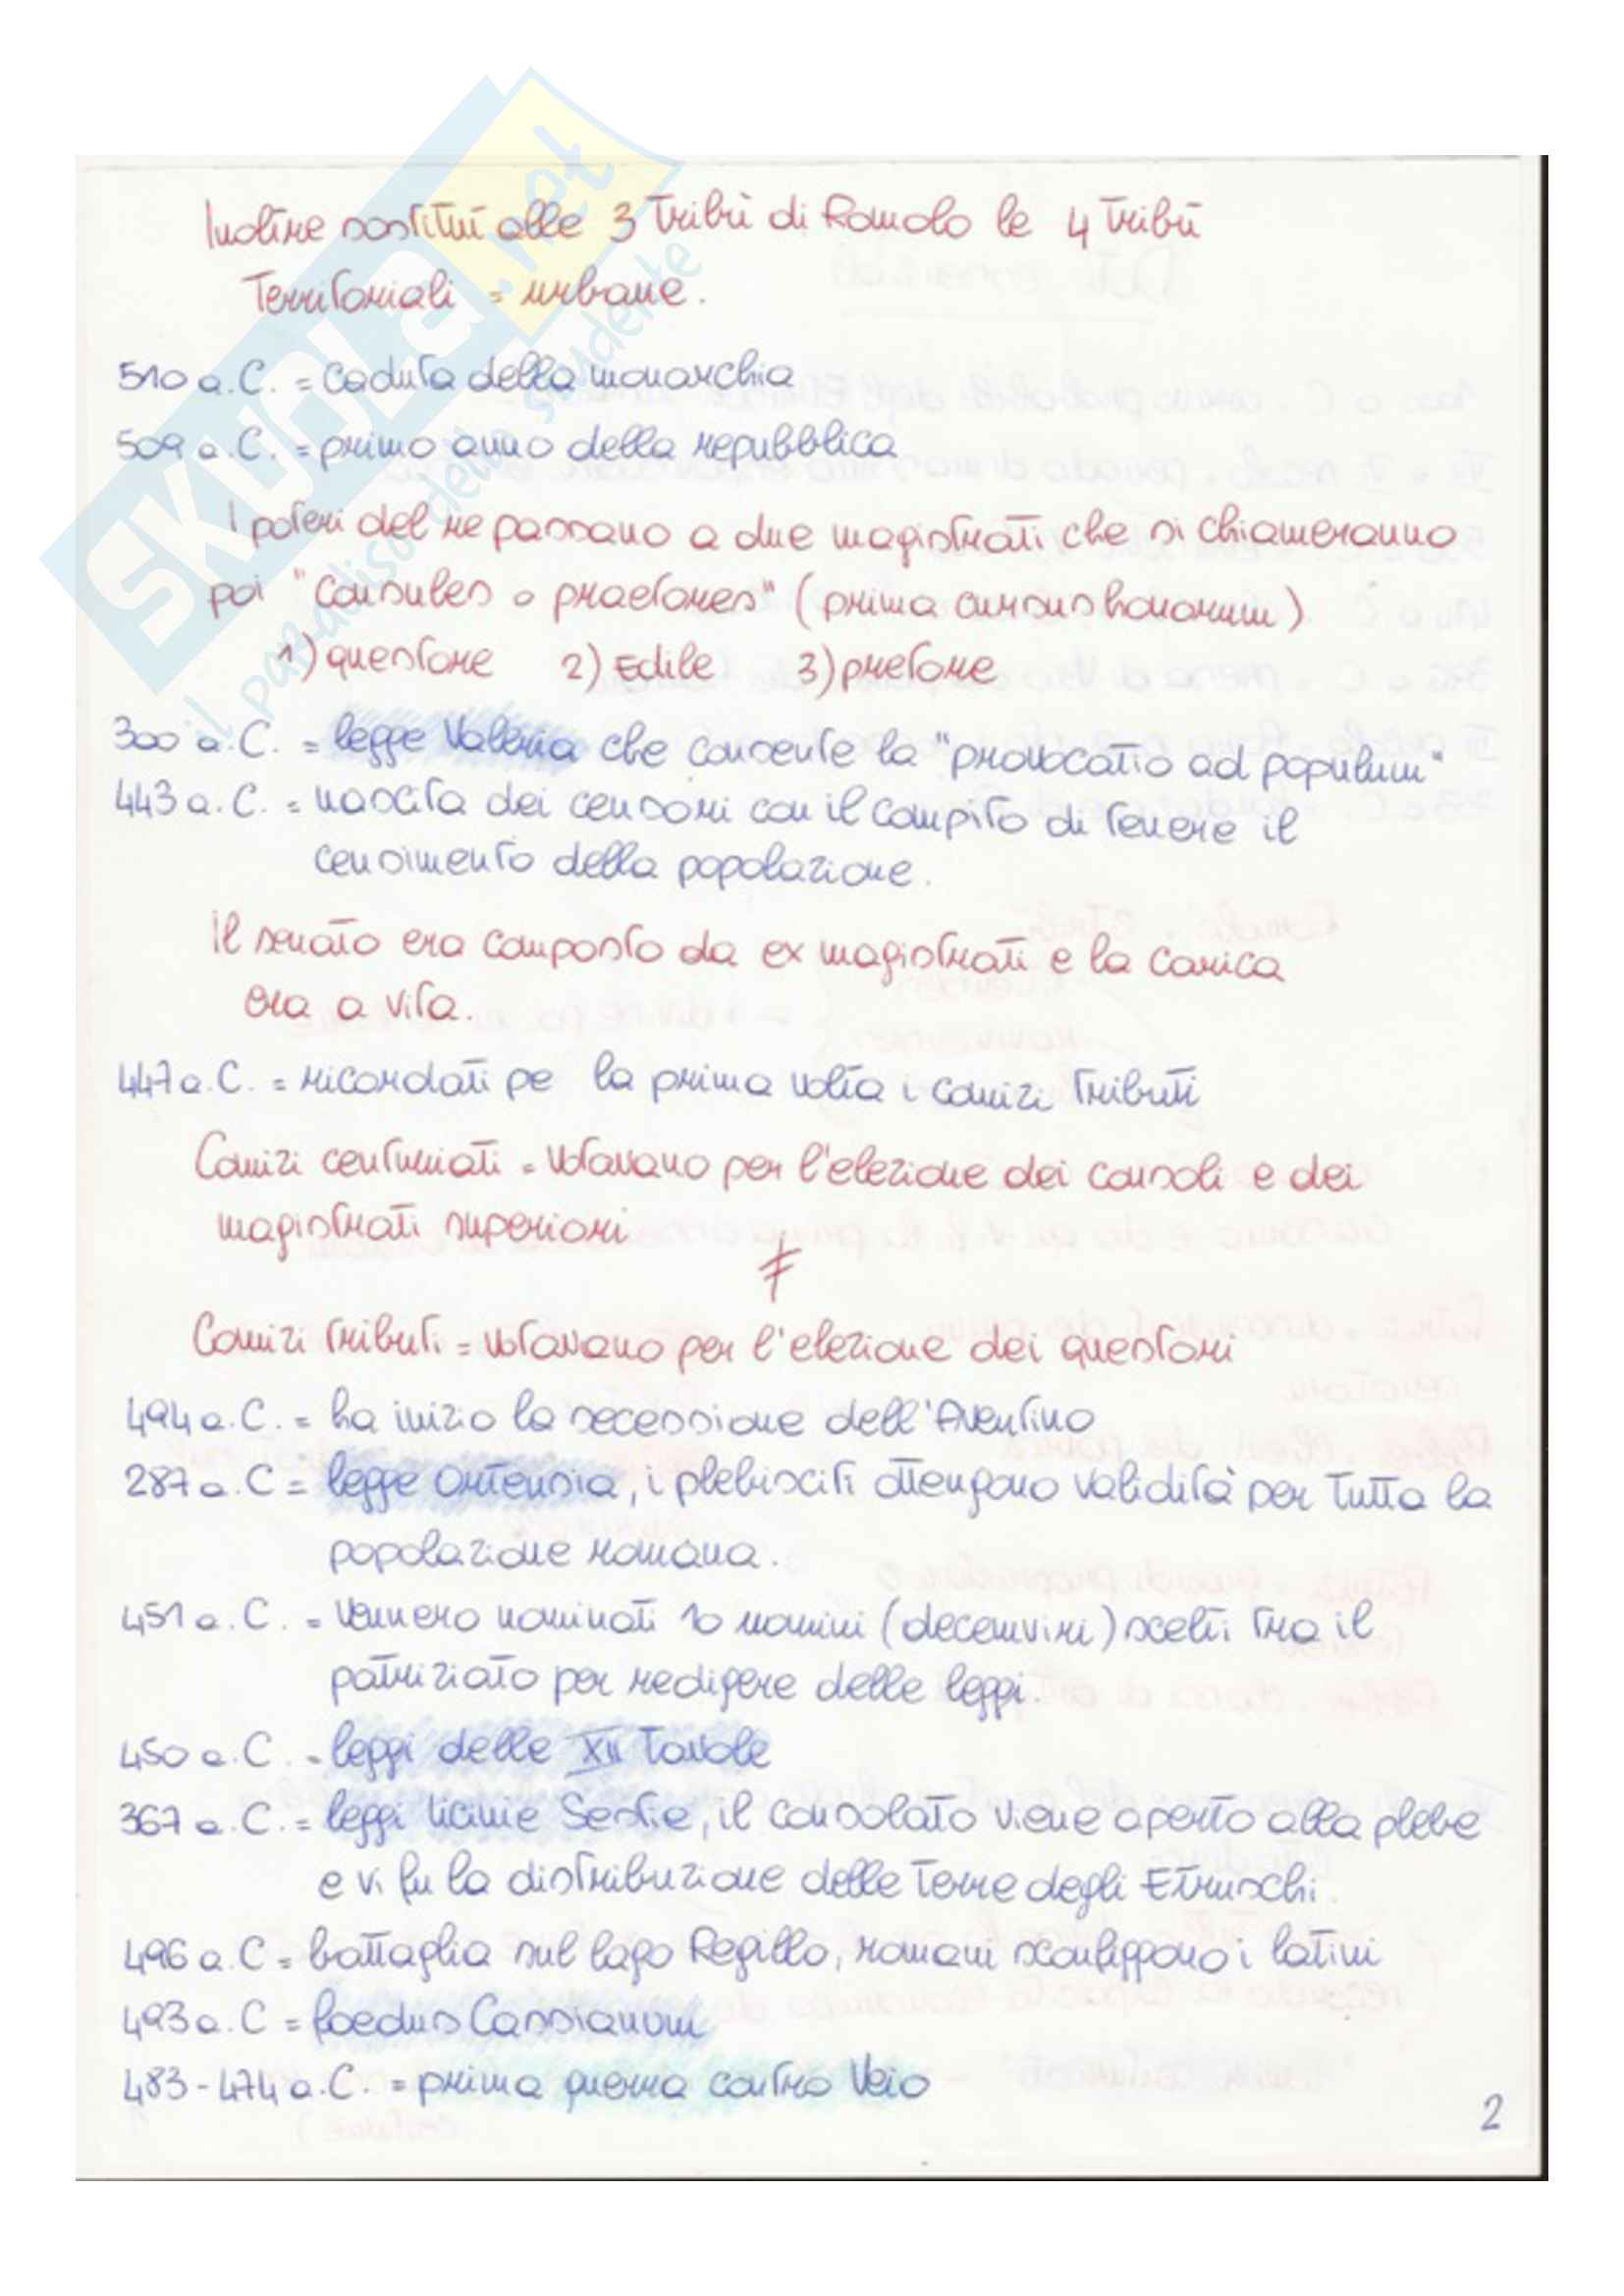 SKUOLA.net
il paradiso dello studente
Inoltre sostituì alle 3 tribù di Romolo le 4 tribù
territoriali = urbane.
510 a.C. = caduta della monarchia
509 a.C. = primo anno della repubblica
I poteri del re passano a due magistrati che si chiameranno
poi "consules o praetores" (prima cursus honorum)
1) questore 2) Edile 3) pretore
300 a.C. = legge Valeria che consente la "provocatio ad populum"
443 a.C. = nascita dei censori con il compito di tenere il
censimento della popolazione.
Il senato era composto da ex magistrati e la carica
era a vita.
447 a.C. = ricordati pe la prima volta i comizi tributi
Comizi centuriati = votavano per l'elezione dei consoli e dei
magistrati superiori
≠
Comizi tributi = votavano per l'elezione dei questori
494 a.C. = ha inizio la secessione dell'Aventino
287 a.C = legge Ortensia, i plebisciti ottengono validità per tutta la
popolazione romana.
451 a.C. = Vennero nominati 10 uomini (decemviri) scelti tra il
patriziato per redigere delle leggi.
450 a.C. = leggi delle XII Tavole
367 a.C. = leggi licinie Sestie, il consolato viene aperto alla plebe
e vi fu la distribuzione delle terre degli Etruschi.
496 a.C = battaglia sul lago Regillo, romani sconfiggono i latini
493 a.C = foedus Cassianum
483-474 a.C. = prima guerra contro Veio
2